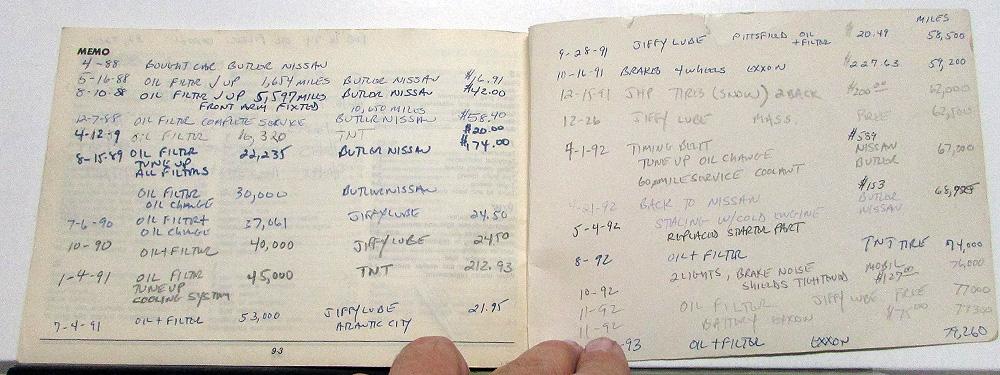 MEMO
4-88 BOUGHT CAR BUTLER NISSAN
5-16-88 OIL FILTR /UP 1,654 MILES BUTLER NISSAN $16.91
8-10-88 OIL FILTER /UP 5,597 MILES BUTLER NISSAN $42.00
FRONT ARM FIXTED
10,650 MILES
12-7-88 OIL FILTER COMPLETE SERVICE BUTLER NISSAN $58.40
4-12-9 OIL FILTER 16,320 TNT $20.00
8-15-89 OIL FILTR 22,235 BUTLER NISSAN $174.00
TUNE UP
ALL FILTERS
OIL FILTER 30,000 BUTLER NISSAN
OIL CHANGE
7-6-90 OIL FILTR+ 37,661 JIFFYLUBE 24.50
OIL CHANGE
10-90 OIL+FILTER 40,000 JIFFYLUBE 24.50
1-4-91 OIL FILTR 45,000 TNT 212.93
TUNEUP
COOLING SYSTEM
7-4-91 OIL+FILTER 53,000 JIFFYLUBE 21.95
ATLANTIC CITY
9-3
MILES
9-28-91 JIFFY LUBE PITTSFILED OIL $20.49 58,500
+FILTER
10-16-91 BRAKES 4 WHEELS EXXON $227.63 59,200
12-15-91 TIRES (SNOW) 2 BACK $200.00 62,000
12-26 JIFFY LUBE MASS. FREE 62,500
4-1-92 TIMING BELT $539 67,000
TUNE UP OIL CHANGE NISSAN
60,000 MILE SERVICE COOLANT BUTLER
4-21-92 BACK TO NISSAN $153
5-4-92 STALING W/COLD ENGINE BUTLER
REPLACED STARTER PART NISSAN
8-92 OIL + FILTER TNT TIRE 74,000
10-92 2 LIGHTS, BRAKE NOISE MOBIL 76,000
SHIELDS TIGHTEND $127.00
11-92 OIL FILTER JIFFY LUBE FREE 77000
11-92 BATTERY EXXON $75.00 77300
93 OIL +FILTER EXXON 79,260